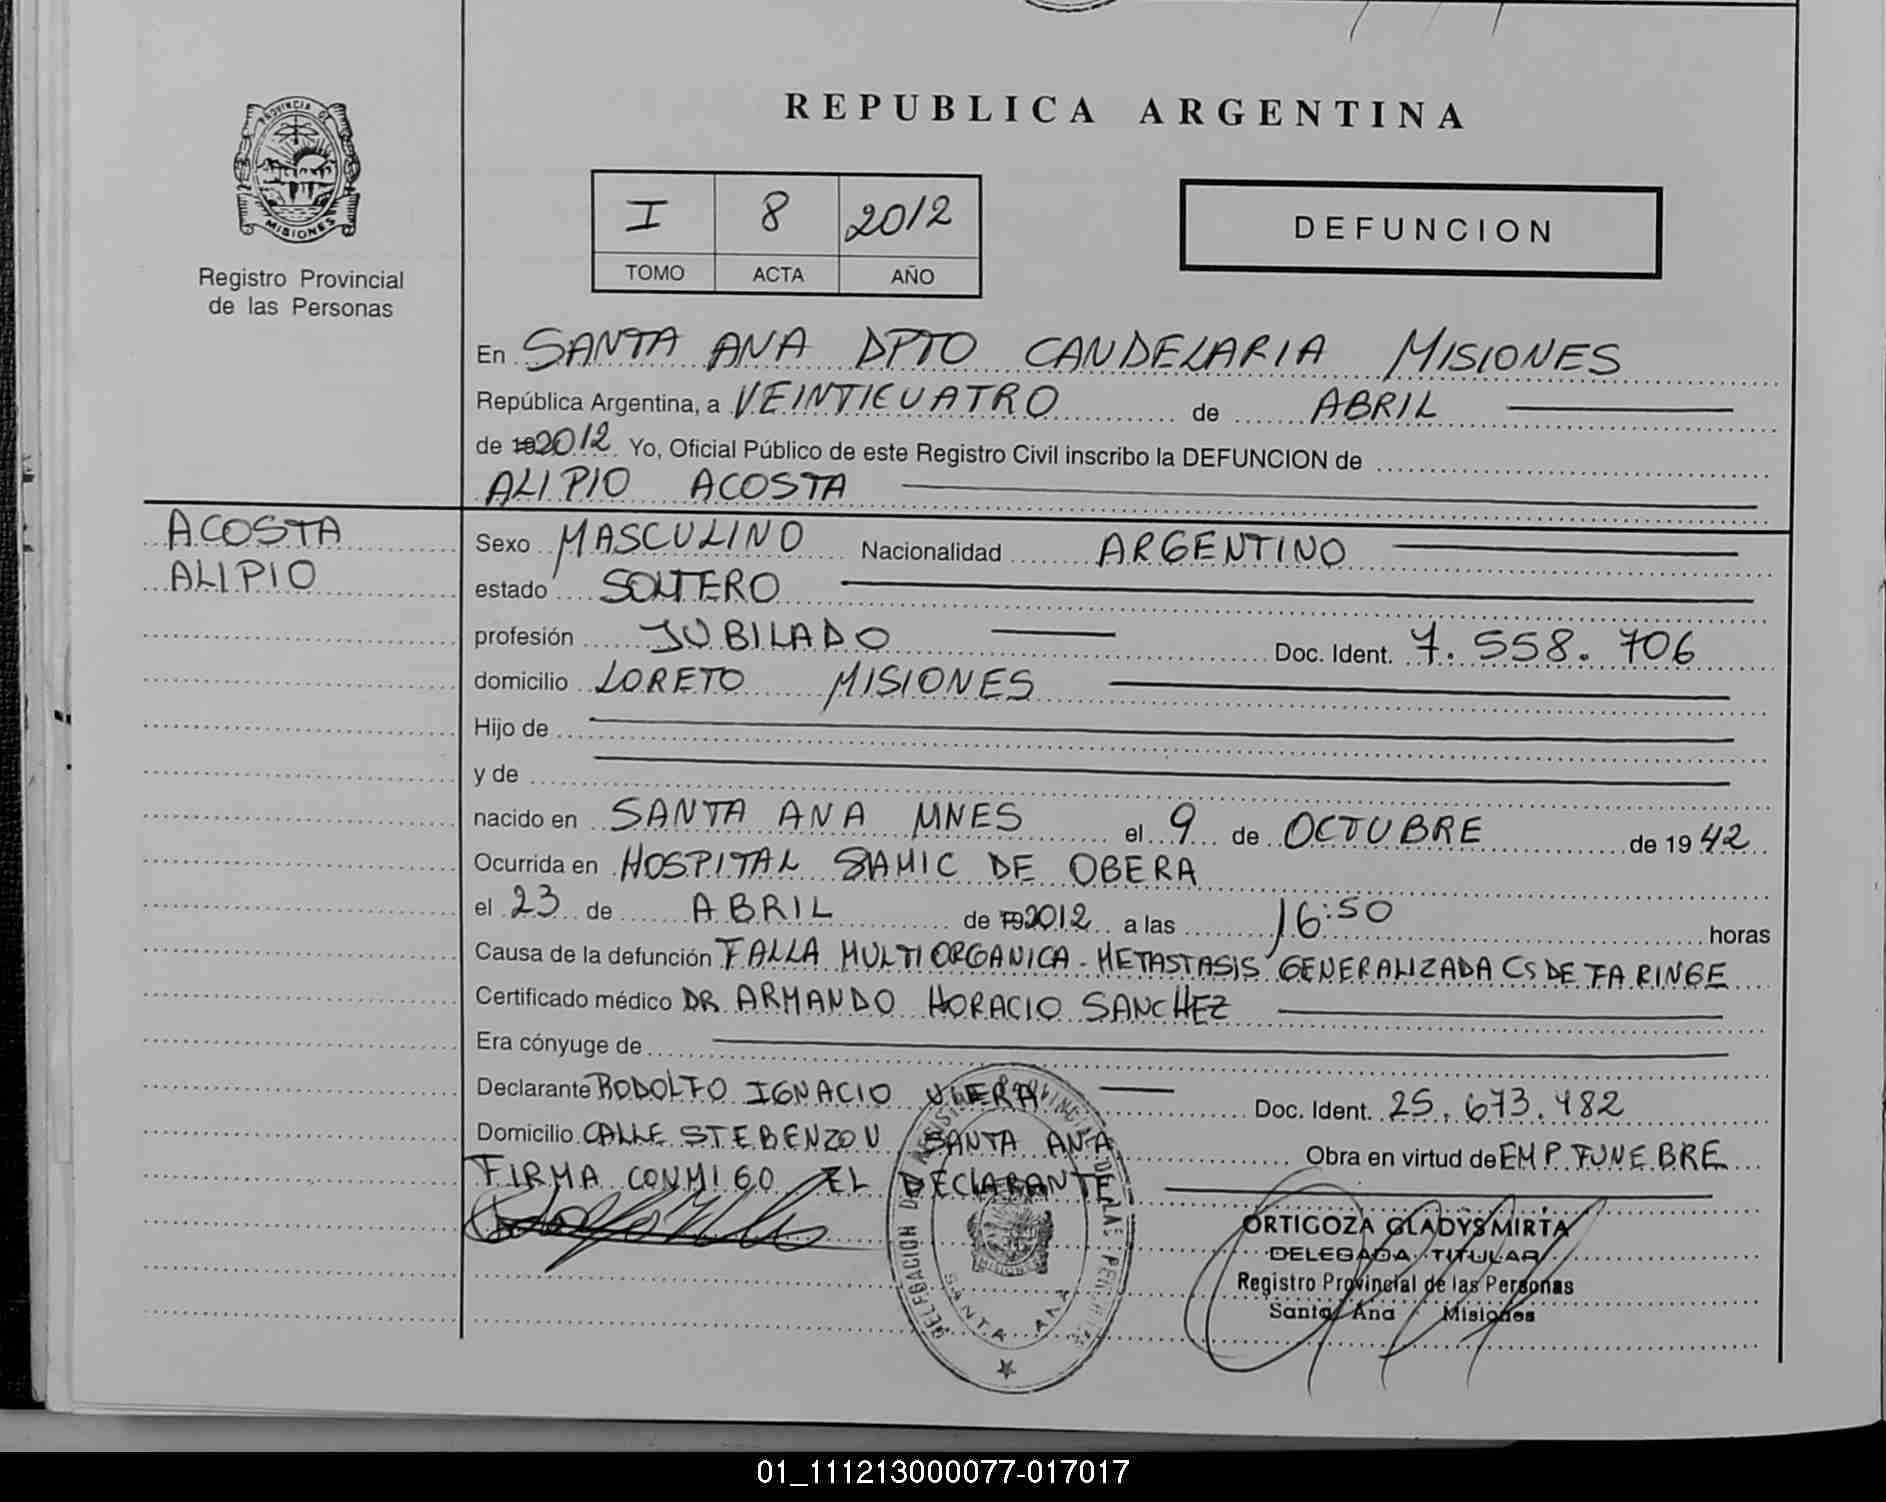 REPUBLICA ARGENTINA
PROVINCIA DE
MISIONES
Registro Provincial
de las Personas
I 8 2012
TOMO ACTA AÑO
DEFUNCION
En SANTA ANA DPTO CANDELARIA MISIONES
República Argentina, a VEINTICUATRO de ABRIL
de 19 2012 Yo, Oficial Público de este Registro Civil inscribo la DEFUNCION de
ALIPIO ACOSTA
ACOSTA
ALIPIO
Sexo MASCULINO Nacionalidad ARGENTINO
estado SOLTERO
profesión JUBILADO Doc. Ident. 7.558.706
domicilio LORETO MISIONES
Hijo de
y de
nacido en SANTA ANA MNES el 9 de OCTUBRE de 1942
Ocurrida en HOSPITAL SAMIC DE OBERA
el 23 de ABRIL de 19 2012 a las 16:50 horas
Causa de la defunción FALLA MULTIORGANICA - METASTASIS GENERALIZADA CS DE FARINGE
Certificado médico DR ARMANDO HORACIO SANCHEZ
Era cónyuge de
Declarante RODOLFO IGNACIO VIERA Doc. Ident. 25.673.482
Domicilio CALLE STEBENZON SANTA ANA Obra en virtud de EMP FUNEBRE
FIRMA CONMIGO EL DECLARANTE
DELEGACION SANTA ANA
MISIONES
ORTIGOZA GLADYS MIRTA
DELEGADA TITULAR
Registro Provincial de las Personas
Santa Ana Misiones
01_111213000077-017017